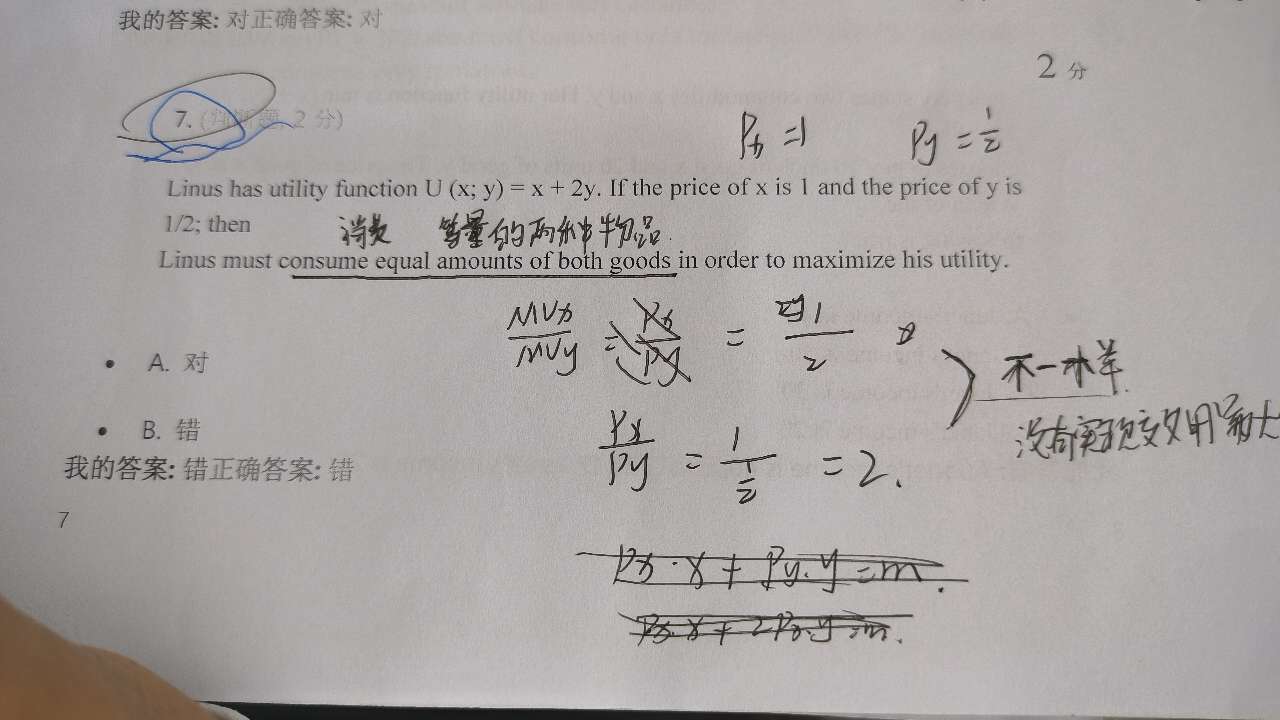 我的答案: 对正确答案: 对
2 分
7. (判断题, 2 分)
Px = 1 Py = 1/2
Linus has utility function U (x; y) = x + 2y. If the price of x is 1 and the price of y is
1/2; then
消费 等量的两种物品
Linus must consume equal amounts of both goods in order to maximize his utility.
MUx/MUy = Px/Py = 1/2
不一样
A. 对
没有实现效用最大
B. 错
Px/Py = 1/(1/2) = 2.
我的答案: 错正确答案: 错
7
Px·x + Py·y = m.
Px·x + 2Px·y = m.